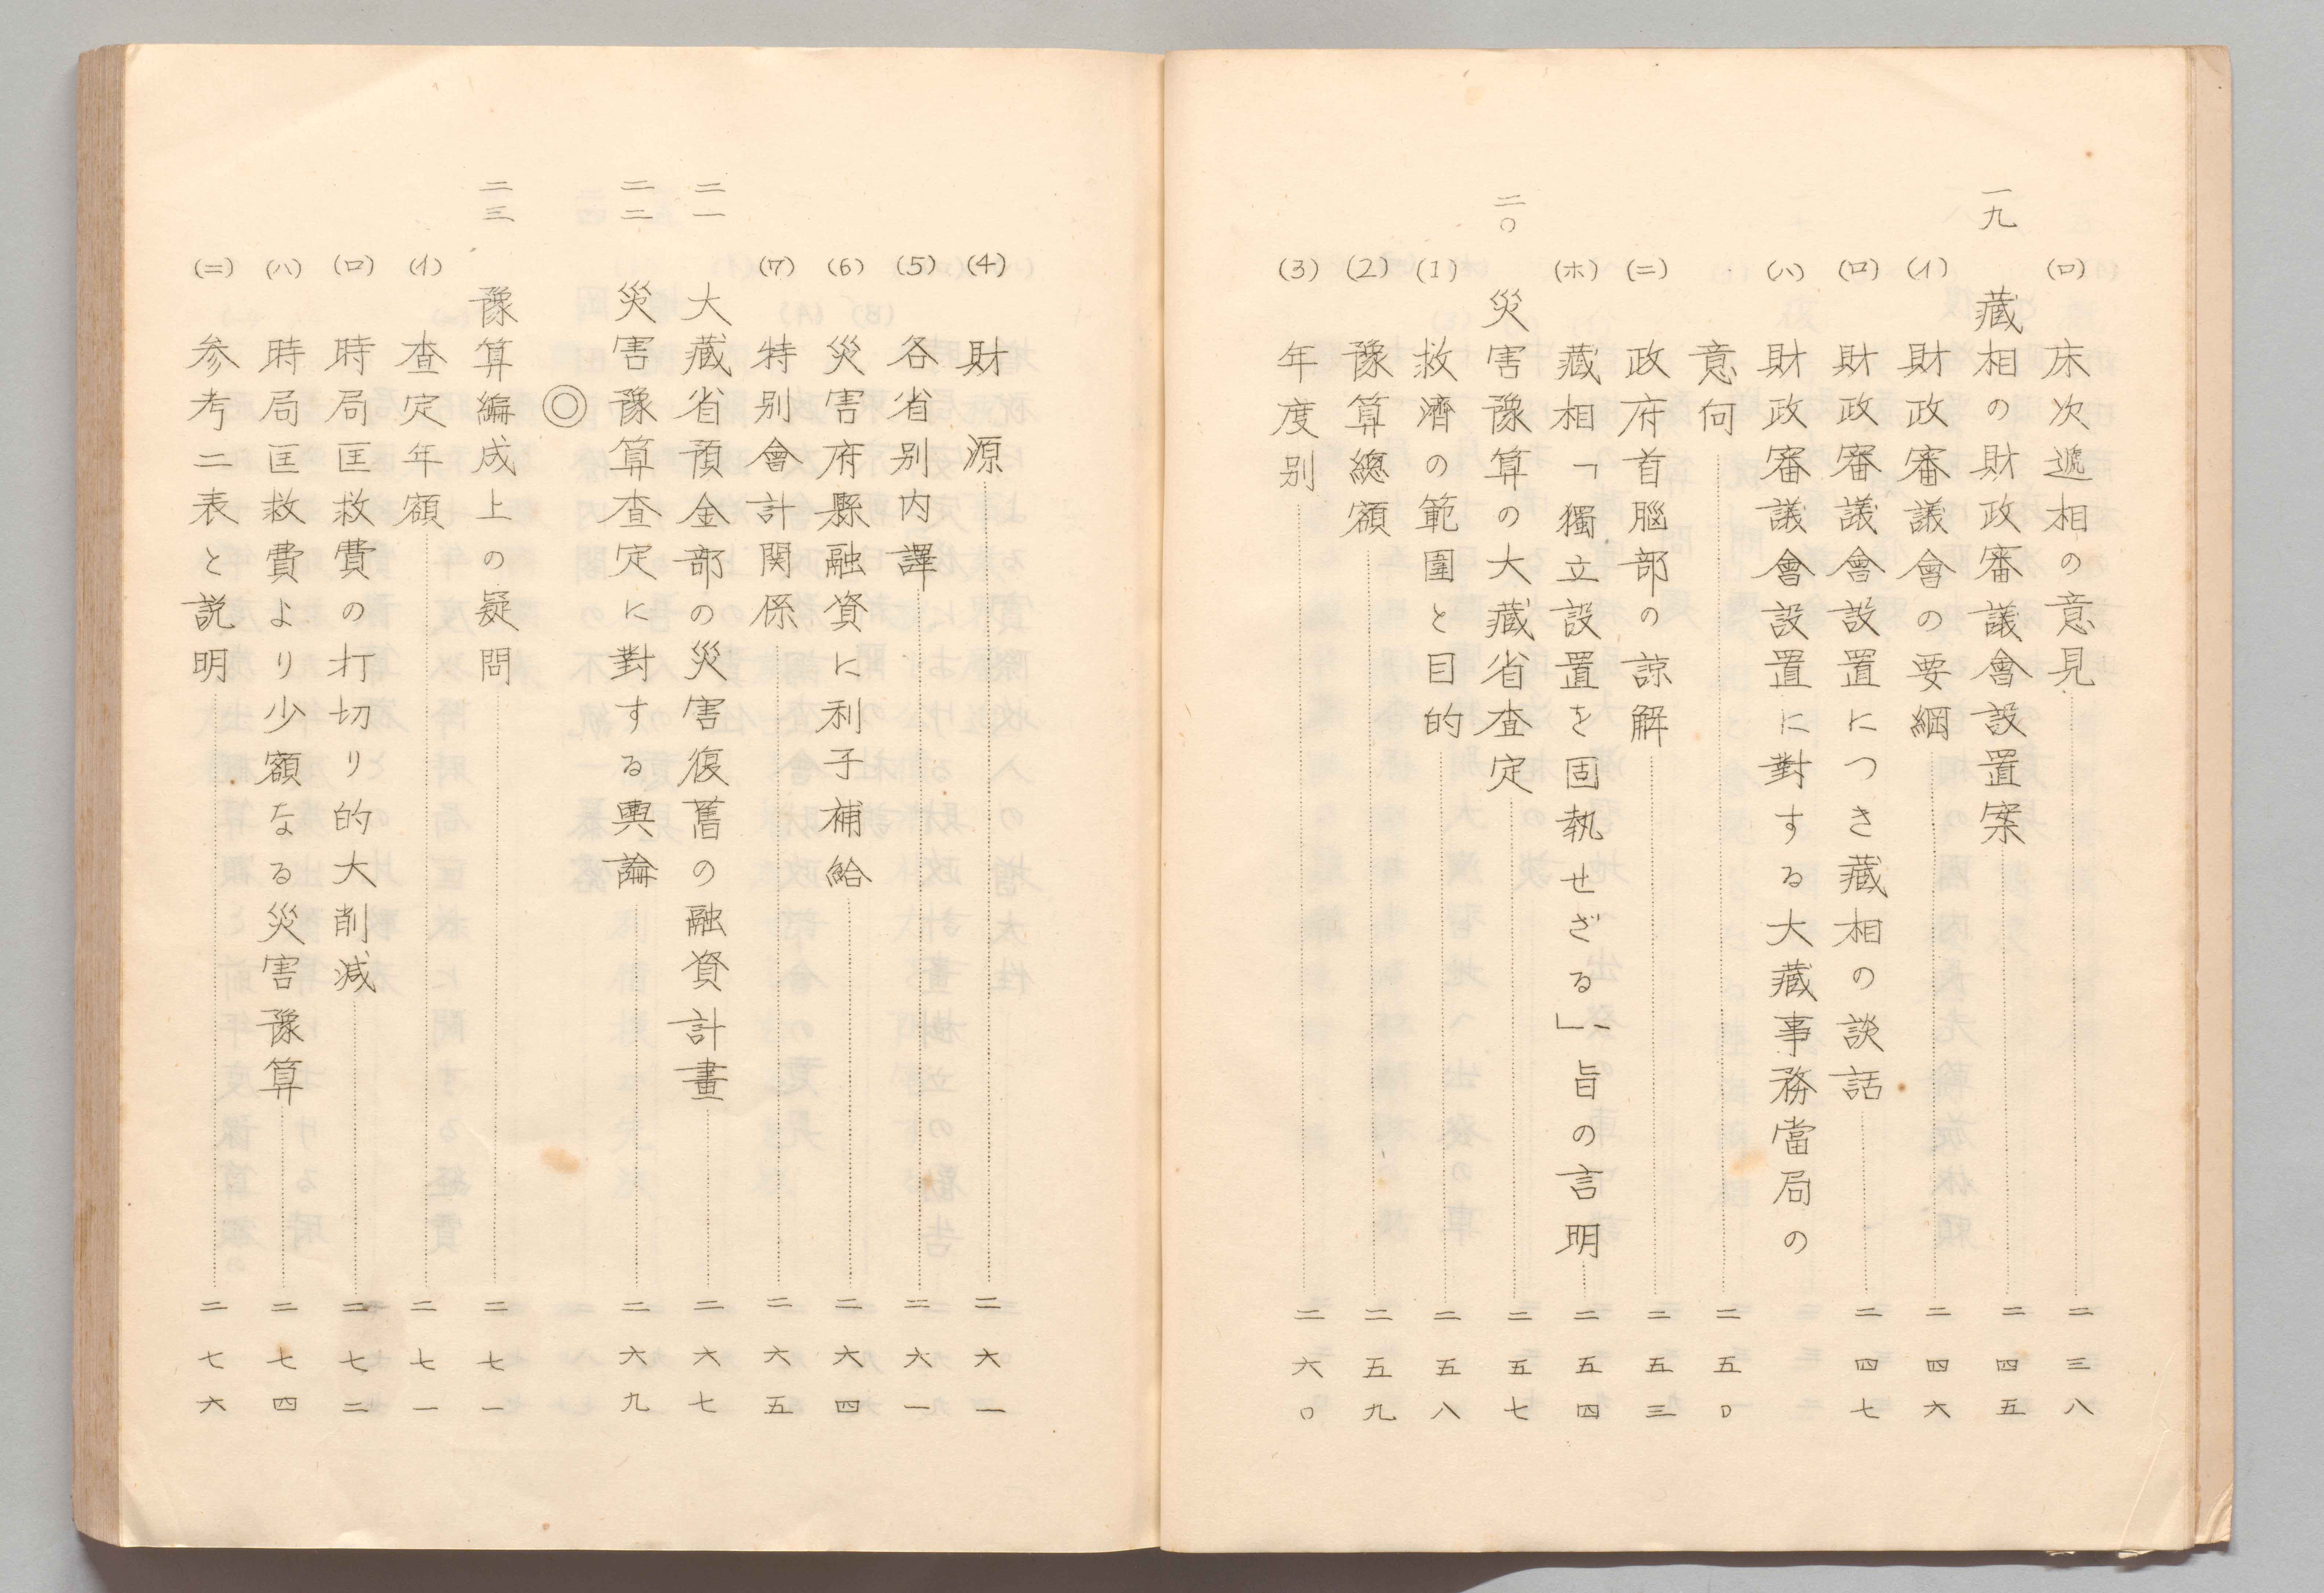 (ロ) 床次遞相の意見 二三八
一九 藏相の財政審議會設置案 二四五
(イ) 財政審議會の要綱 二四六
(ロ) 財政審議會設置につき藏相の談話 二四七
(ハ) 財政審議會設置に對する大藏事務當局の
意何 二五〇
(ニ) 政府首腦部の諒解 二五三
(ホ) 藏相「獨立設置を固執せざる」旨の言明 二五四
二〇 災害豫算の大藏省査定 二五七
(1) 救濟の範圍と目的 二五八
(2) 豫算總額 二五九
(3) 年度别 二六〇
(4) 財源 二六一
(5) 各省别内譯 二六一
(6) 災害府縣融資に利子補給 二六四
(7) 特别會計関係 二六五
二一 大藏省預金部の災害復舊の融資計畫 二六七
二二 災害豫算査定に對する輿論 二六九
◎
二三 豫算編成上の疑問 二七一
(イ) 査定年額 二七一
(ロ) 時局匡救費の打切り的大削減 二七二
(ハ) 時局匡救費より少額なる災害豫算 二七四
(ニ) 参考二表と説明 二七六